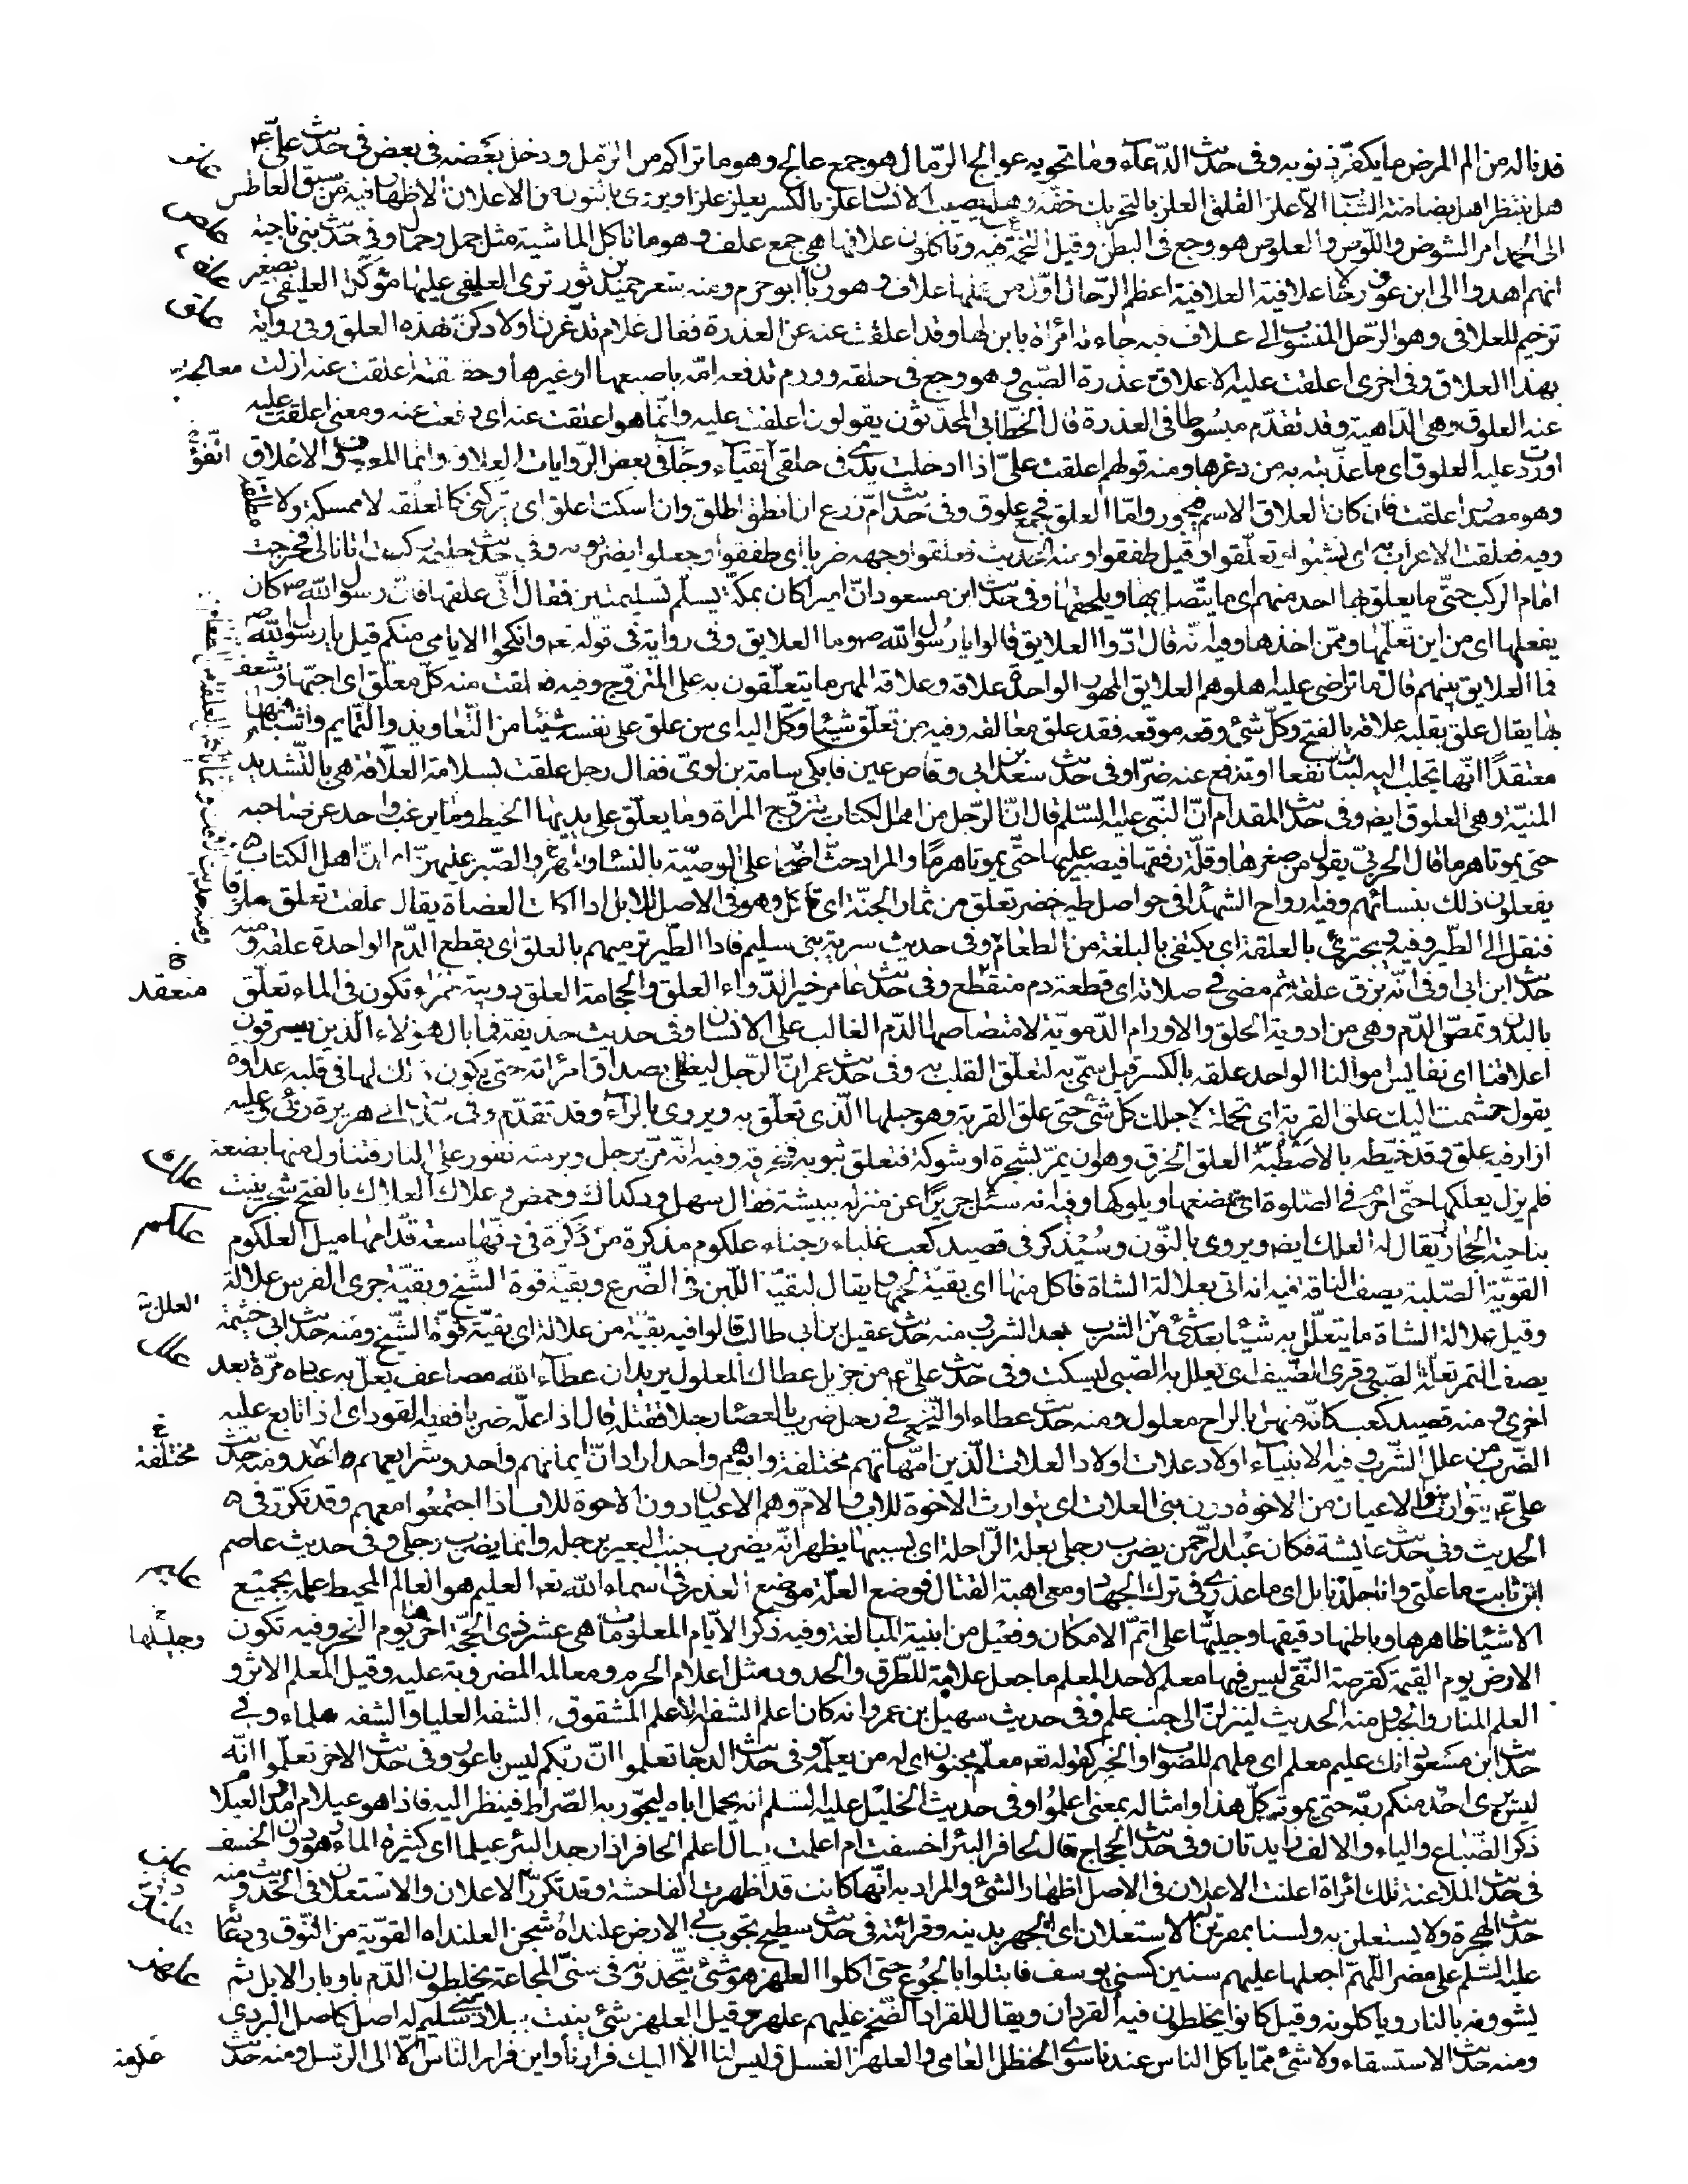 قد ناله من الم المرض ما يكفّر ذنوبه وفى حديث الدّعاء وما تحويه عوالج الرّمال هو جمع عالج وهو ما تراكم من الرّمل ودخل بعضه فى بعض فى حديث علىّ
هل ينتظر اهل بضاضة الشباب الّا علز القلق العلز بالتحريك خفّة وهلع يصيب الانسان علز بالكسر يعلز علزا ويروى بالنون من الاعلان الاظهار فيه من سبق العاطس
الى الحمد امن الشوص واللّوص والعلوص هو وجع فى البطن وقيل التخمة فيه وتاكلون علافها هى جمع علف وهو ما تاكل الماشية مثل جمل وجمال وفى حديث بنى ناجية
انهم اهدوا الى ابن عوف رحالا علافية العلافية اعظم الرّحال اوّل من عملها علاف وهو ربّان ابو جرم ومنه شعر حميد بن ثور ترى العليفى عليها مؤكدا العليفى تصغير
ترخيم للعلافى وهو الرّحل المنسوب الى علاف فيه جاءته امرأة بابن لها وقد اعلقت عنه من العذرة فقال علام تدغرن اولادكن بهذه العلق وفى رواية
بهذا العلاق وفى اخرى اعلقت عليه الاعلاق معالجة عذرة الصّبى وهو وجع فى حلقه وورم تدفعه امّه باصبعها او غيرها وحقيقة اعلقت عنه ازلت
عنه العلوق وهى الدّاهية وقد تقدّم مبسوطا فى العذرة قال الخطّابى المحدّثون يقولون اعلقت عليه وانّما هو اعلقت عنه اى دفعت عنه ومعنى اعلقت عليه
اوردت عليه العلوق اى ما عذّبته به من دغرها ومنه قولهم اعلقت علىّ اذا ادخلت يدى فى حلقى اتقيّاء وجاء فى بعض الرّوايات العلاق وانما المعروف الاعلاق
وهو مصدر اعلقت فان كان العلاق الاسم فيجوز وامّا العلق فجمع علوق وفى حديث امّ زرع ان انطق اطلق وان اسكت اعلق اى يتركنى كالمعلّقه لا ممسكة ولا مطلقة
وفيه فعلقت الاعراب به اى نشبوا وتعلّقوا وقيل طفقوا ومنه الحديث فعلقوا وجهه ضربا اى طفقوا وجعلوا يضربونه وفى حديث حليمة ركبت اتانا لى فخرجت
امام الركب حتّى ما يعلق بها احد منهم اى ما يتّصل بها ويلحقها وفى حديث ابن مسعود انّ اميرا كان بمكّة يسلّم تسليمتين فقال انّى علقها فانّ رسول الله ص كان
يفعلها اى من اين تعلّمها وممّن اخذها وفيه انّه قال ادّوا العلايق قالوا يا رسول الله ص وما العلايق وفى رواية فى قوله تعه وانكحوا الايامى منكم قيل يا رسول الله ص
فما العلايق بينهم قال ما تراضى عليه اهلوهم العلايق المهور الواحدة علاقه وعلاقة المهر ما يتعلّقون به على المتزوّج وفيه فعلقت منه كلّ معلّق اى احبّها وشعف
بها يقال علق بقلبه علاقة بالفتح وكلّ شئ وقع موقعه فقد علق معالقه وفيه من تعلّق شيئا وكّل اليه اى من علق على نفسه شيئا من التّعاويذ والتّمايم واشباهها
معتقدا انّها تجلب اليه نفعا او تدفع عنه ضرّا وفى حديث سعد بن ابى وقاص عين فابكى سامة بن لوىّ فقال رجل علقت بسلامة العلّاقة هى بالتّشديد
المنيّة وهى العلوق ايضا وفى حديث المقدام انّ النّبى عليه السّلم قال انّ الرّجل من اهل الكتاب يتزوّج المراة وما يعلّق على يديها الخيط وما يرغب واحد عن صاحبه
حتى يموتا هرما قال الحربىّ يقول من صغرها وقلّة رفقها فيصبر عليها حتّى يموتا هرما والمراد حثّ اصحابه على الوصيّة بالنّساء والصّبر عليهنّ اى انّ اهل الكتاب
يفعلون ذلك بنسائهم وفيه ارواح الشهدا فى حواصل طير خضر تعلق من ثمار الجنّة اى تاكل وهو فى الاصل للابل اذا اكلت العضاة يقال علقت تعلق علوقا
فنقل الى الطّير وفيه ويجتزئ بالعلقة اى يكتفى بالبلغة من الطعام وفى حديث سرية بنى سليم فاذا الطّير ترميهم بالعلق اى بقطع الدّم الواحدة علقه ومنه
حديث ابن ابى اوفى انّه بزق علقة ثم مضى فى صلاته اى قطعة دم منعقد وفى حديث عامر خير الدّواء العلق والحجامة العلق دويبة حمراء تكون فى الماء تعلق
بالبدن وتمصّ الدّم وهى من ادوية الحلق والاورام الدّموية لامتصاصها الدّم الغالب على الانسان وفى حديث حذيفة فما بال هؤلاء الّذين يسرقون
اعلاقنا اى نفايس اموالنا الواحد علقه بالكسر قيل سمّى به لتعلّق القلب به وفى حديث عمر انّ الرّجل ليغالى بصداق امرأته حتى يكون ذلك لها فى قلبه عداوة
يقول جشمت اليك علق القربة اى تحمّلت لاجلك كل شئ حتى علق القربة وهو حبلها الّذى تعلّق به ويروى بالراء وقد تقدّم وفى حديث ابى هريرة رئى وعليه
ازار فيه علق وقد خيّطه بالاصطبّة العلق الخرق وهو ان يمرّ بشجرة او شوكة فتعلق بثوبه فتخرقه وفيه انّه مرّ برجل وبرمته تفور على النار فتناول منها بضعة
فلم يزل يعلكها حتّى احرم فى الصّلوة اى يمضغها ويلوكها وفيه انه سئل جريرا عن منزله ببيشة فقال سهل ودكداك وحمض وعلاك العلاك بالفتح شجر ينبت
بناحية الحجاز يقال له العلك ايضا ويروى بالنّون وسيذكر فى قصيد كعب غلباء وجناء علكوم مذكرة فى دفّها سعة قدّامها ميل العلكوم
القويّة الصّلبة يصف الناقة فيه انه اتى بعلالة الشاة فاكل منها اى بقية لحمها يقال لبقيّة اللّبن فى الضّرع وبقيّة قوة الشّيخ وبقيّة جرى الفرس علالة
وقيل علالة الشاة ما يتعلّل به شيئا بعد شئ من العلل الشرب بعد الشرب ومنه حديث عقيل بن ابى طالب قالوا فيه بقيّة من علالة اى بقيّة قوّة الشّيخ ومنه حديث ابى حثمة
يصف التّمر تعلّة الصّبى وقرى الضّيف اى يعلل به الصّبى ليسكت وفى حديث علىّ ع من جزيل عطائك المعلول يريد ان عطاء الله مضاعف يعلّ به عباده مرّة بعد
اخرى ومنه قصيد كعب كانّه منهل بالراح معلول ومنه حديث عطاء او النّخعى فى رجل ضرب بالعصا رجلا فقتله قال اذا علّه ضربا ففيه القود اى اذا تابع عليه
الضّرب من علل الشّرب وفيه الانبياء اولاد علات اولاد العلات الّذين امّهاتهم مختلفة وابوهم واحد اراد انّ ايمانهم واحد وشرايعهم مختلفة ومنه حديث
علىّ ع يتوارث بنوا الاعيان من الاخوة دون بنى العلات اى يتوارث الاخوة للاب والامّ وهم الاعيان دون الاخوة للاب اذا اجتمعوا معهم وقد تكرّر فى
الحديث وفى حديث عايشة فكان عبد الرّحمن يضرب رجلى بعلة الرّاحلة اى بسببها يظهر انّه يضرب جنب البعير برجله وانما يضرب رجلى وفى حديث عاصم
ابن ثابت ما علّتى وانا جلد نابل اى ما عذرى فى ترك الجهاد ومعى اهبة القتال فوضع العلّة موضع العذر فى اسماء الله تعه العليم هو العالم المحيط علمه بجميع
الاشيا ظاهرها وباطنها دقيقها وجليلها على اتمّ الامكان وفعيل من ابنية المبالغة وفيه ذكر الايّام المعلومات هى عشر ذى الحجّة اخرها يوم النحر وفيه تكون
الارض يوم القيمة كقرصة النّقى ليس فيها معلم لاحد المعلم ما جعل علامة للطّرق والحدود مثل اعلام الحرم ومعالمه المضروبة عليه وقيل المعلم الاثر و
العلم المنار والجبل ومنه الحديث لينزلنّ الى جنب علم وفى حديث سهيل بن عمرو انه كان اعلم الشفه الاعلم المشقوق الشفه العليا والشفه علماء وفى
حديث ابن مسعود انك عليم معلم اى ملهم للصّواب والخير كقوله تعه معلّم مجنون اى له من يعلّمه وفى حديث الدجال تعلموا انّ ربّكم ليس باعور وفى حديث الاخر تعلّموا انّه
ليس يرى احد منكم ربّه حتى يموت كلّ هذا وامثاله بمعنى اعلموا وفى حديث الخليل عليه السّلم انه يحمل اباه ليجوّز به الصّراط فينظر اليه فاذا هو عيلام امدر العيلام
ذكر الضّباع والياء والالف زايدتان وفى حديث الحجّاج قال لحافر البئر اخسفت ام اعلمت يقال اعلم الحافر اذا وجد البئر عيلما اى كثيرة الماء وهو دون الخسف
فى حديث الملاعنة تلك امرأة اعلنت الاعلان فى الاصل اظهار الشئ والمراد به انّها كانت قد اظهرت الفاحشة وقد تكرّر الاعلان والاستعلان فى الحديث ومنه
حديث الهجرة ولا يستعلن به ولسنا بمقرّين له الاستعلان اى الجهر بدينه وقراءته فى حديث سطيح تجوب بى الارض علنداة شجن العلنداه القويّة من النّوق فى دعائه
عليه السّلم على مضر اللّهمّ اجعلها عليهم سنين كسنى يوسف فابتلوا بالجوع حتى اكلوا العلهز هو شئ يتّخذونه فى سنى المجاعة يخلطون الدّم باوبار الابل ثم
يشوونه بالنار وياكلونه وقيل كانوا يخلطون فيه القردان ويقال للقراد الضّخم علهز وقيل العلهز شئ ينبت ببلاد بنى سليم له اصل كاصل البردى
ومنه حديث الاستسقاء ولا شئ ممّا ياكل الناس عندنا سوى الحنظل العامى والعلهز الفسل وليس لنا الا اليك فرارنا واين فرار النّاس الّا الى الرّسل ومنه حديث
علز
علص
علف
علق
معالجة
منعقد
علك
علكم
علل
مختلفة
علم
وجليلها
علن
علند
علهز